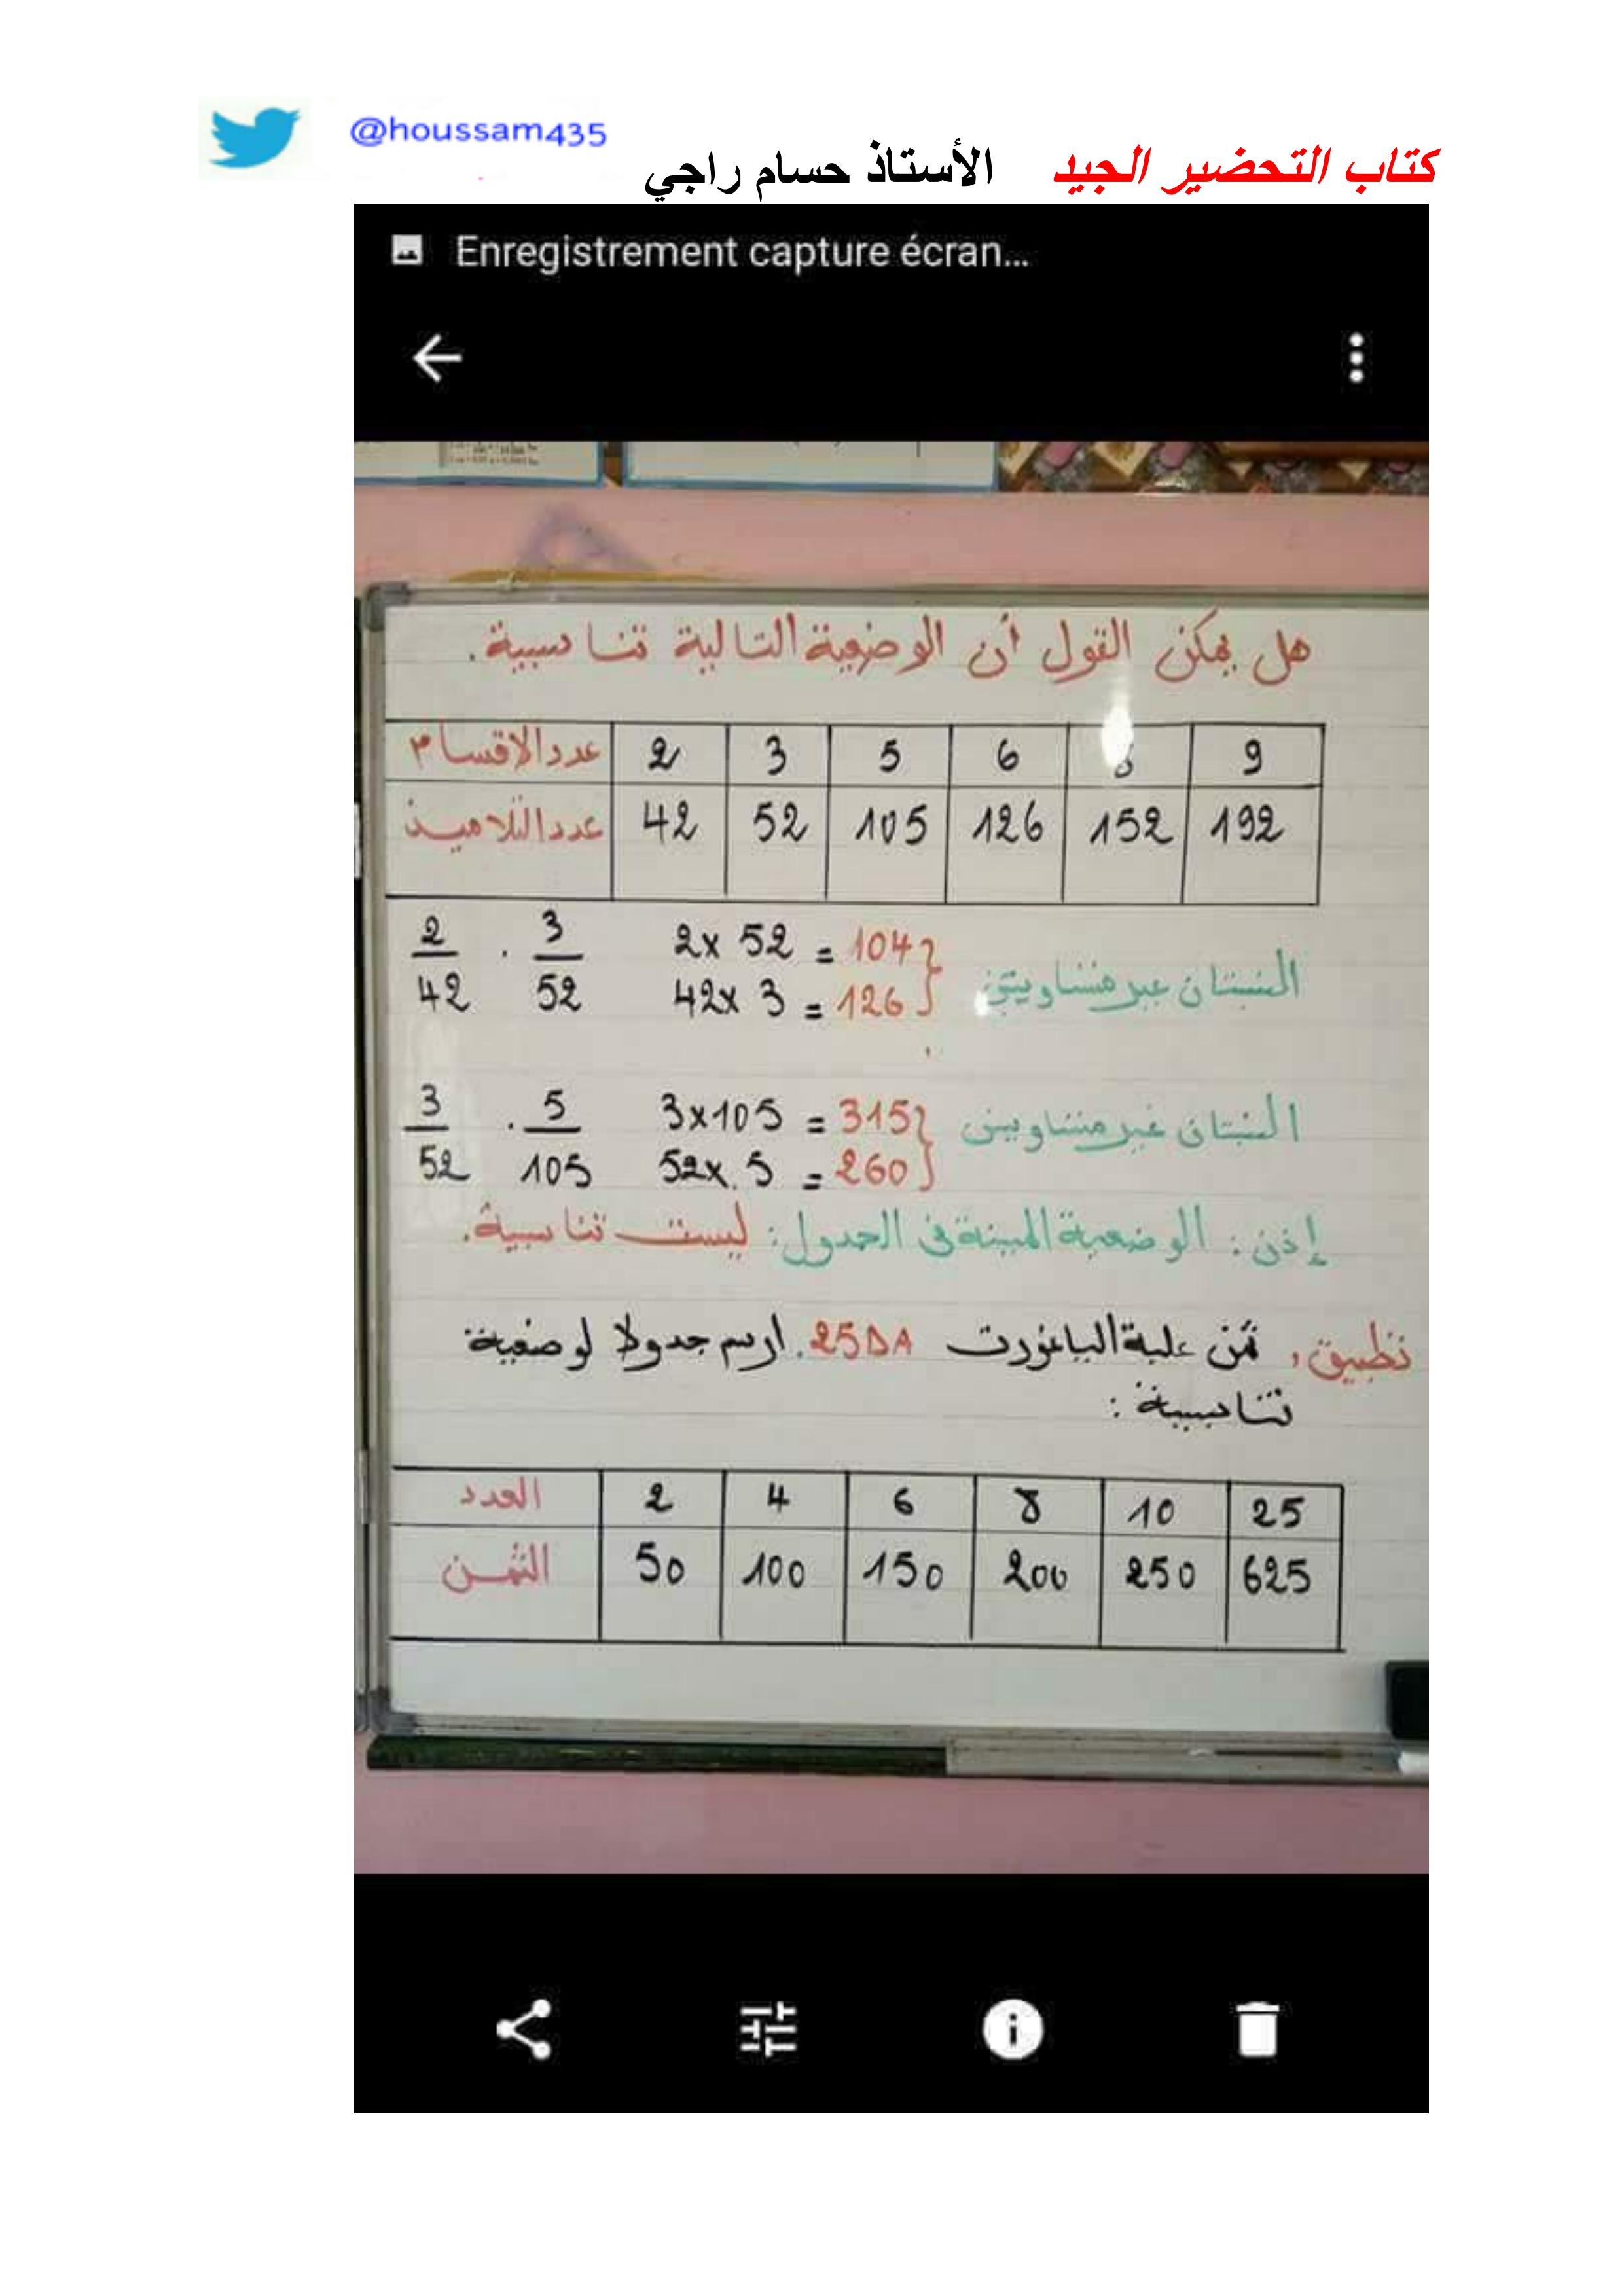 @houssam435
كتاب التحضير الجيد الأستاذ حسام راجي
Enregistrement capture écran...
هل يمكن القول أن الوضعية التالية تناسبية.
عدد الاقسام 2 3 5 6 8 9
عدد التلاميذ 42 52 105 126 152 192
2 . 3 2x 52 = 104
42 52 42x 3 = 126
النسبتان غير متساويتين
3 . 5 3x105 = 315
52 105 52x. 5 = 260
النسبتان غير متساويتين
إذن: الوضعية المبينة في الجدول: ليست تناسبية.
تطبيق، ثمن علبة الياغورت 25DA. ارسم جدولا لوضعية
تناسبية:
العدد 2 4 6 8 10 25
الثمن 50 100 150 200 250 625